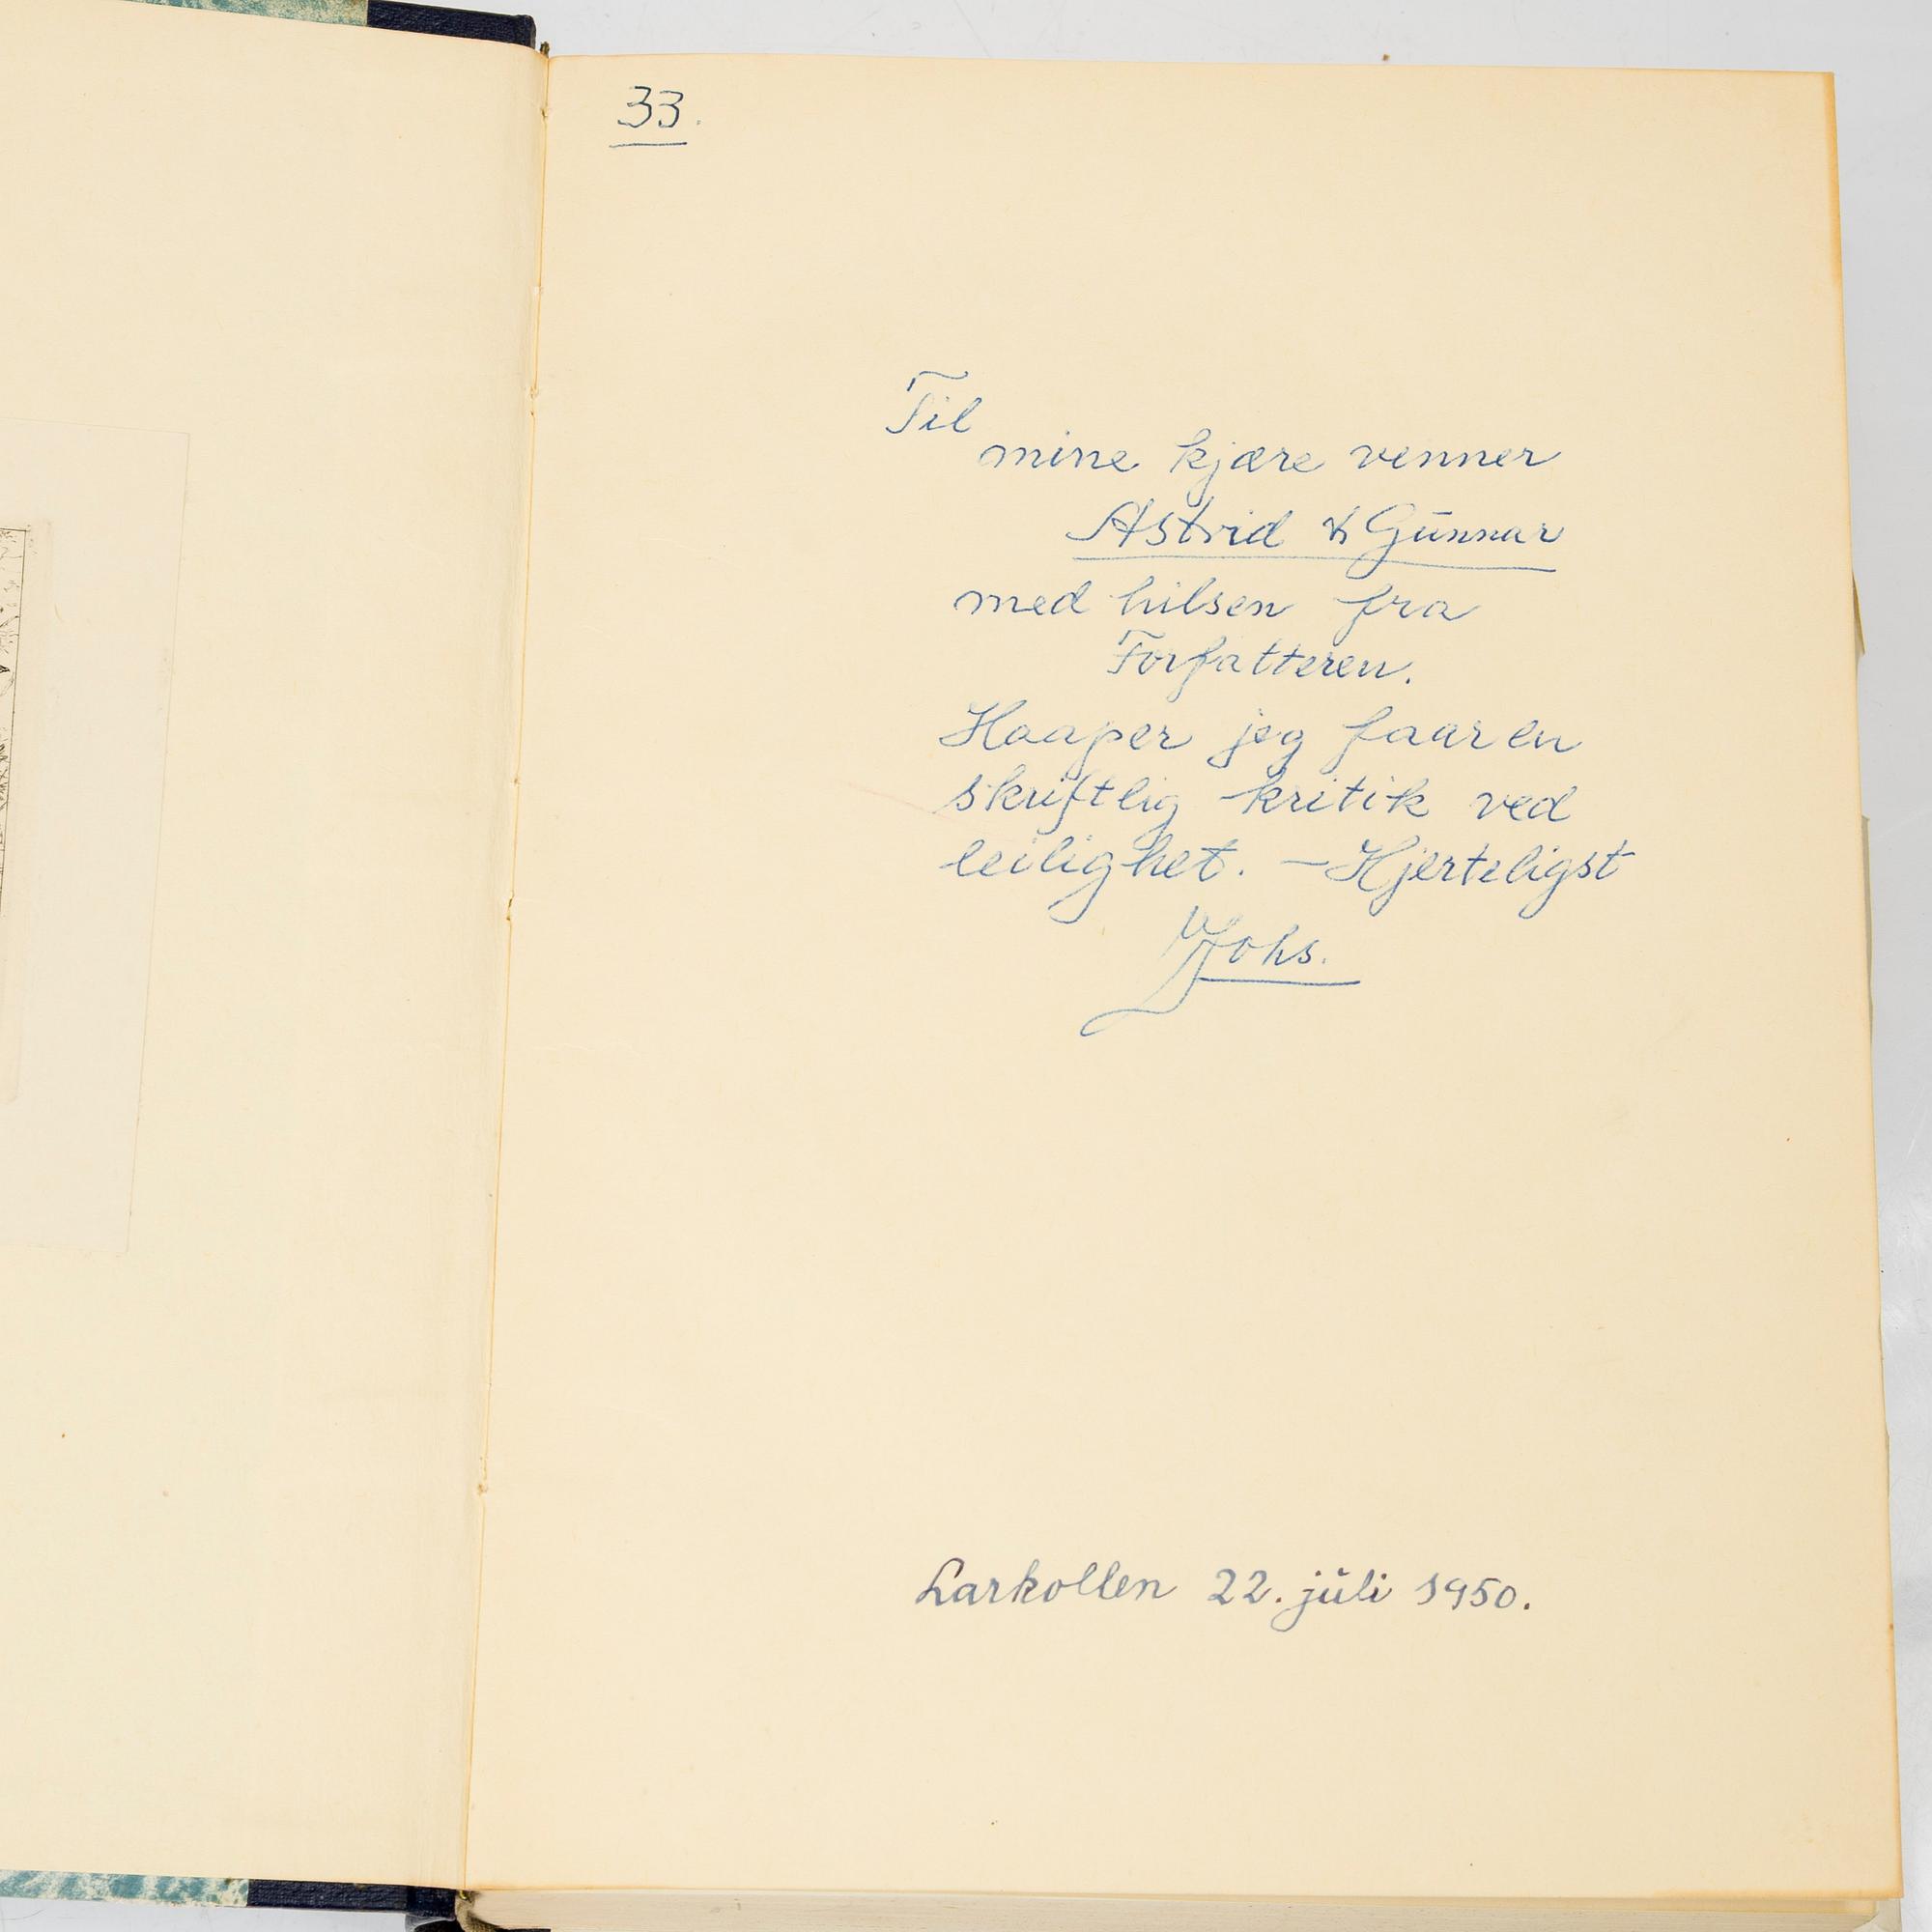 33.
Til
mine kjære venner
Astrid & Gunnar
med hilsen fra
Forfatteren.
Haaper jeg faar en
skriftlig kritik ved
leilighet. — Hjerteligst
Johs.
Larkollen 22. juli 1950.